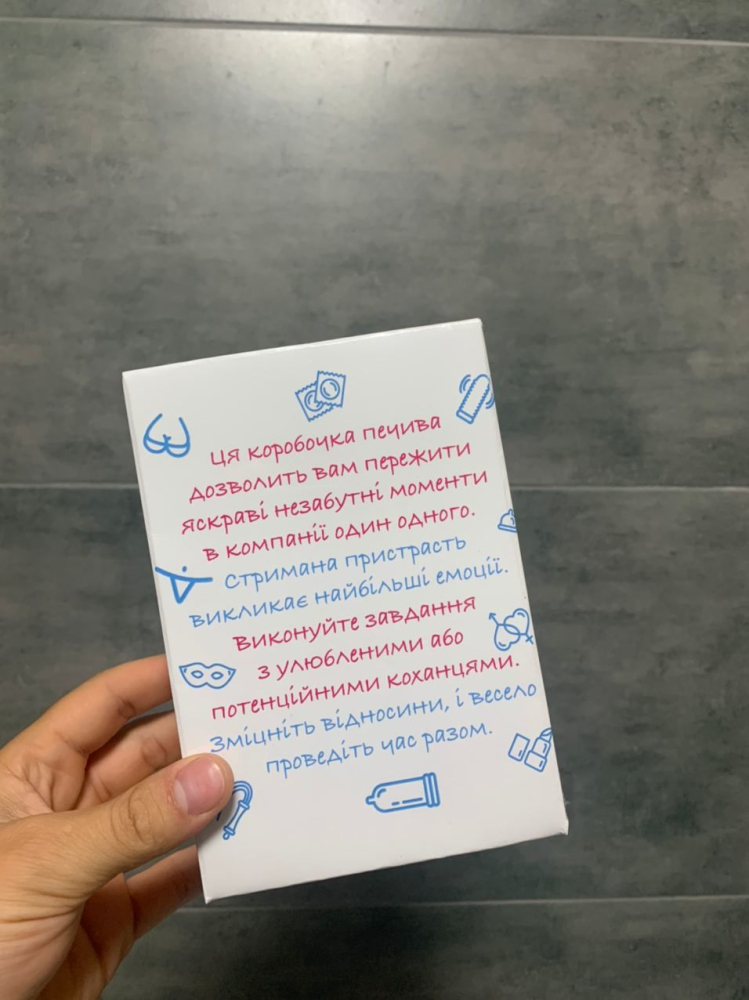 Ця коробочка печива
дозволить вам пережити
яскраві незабутні моменти
в компанії один одного.
Стримана пристрасть
викликає найбільші емоції.
Виконуйте завдання
з улюбленими або
потенційними коханцями.
Зміцніть відносини, і весело
проведіть час разом.